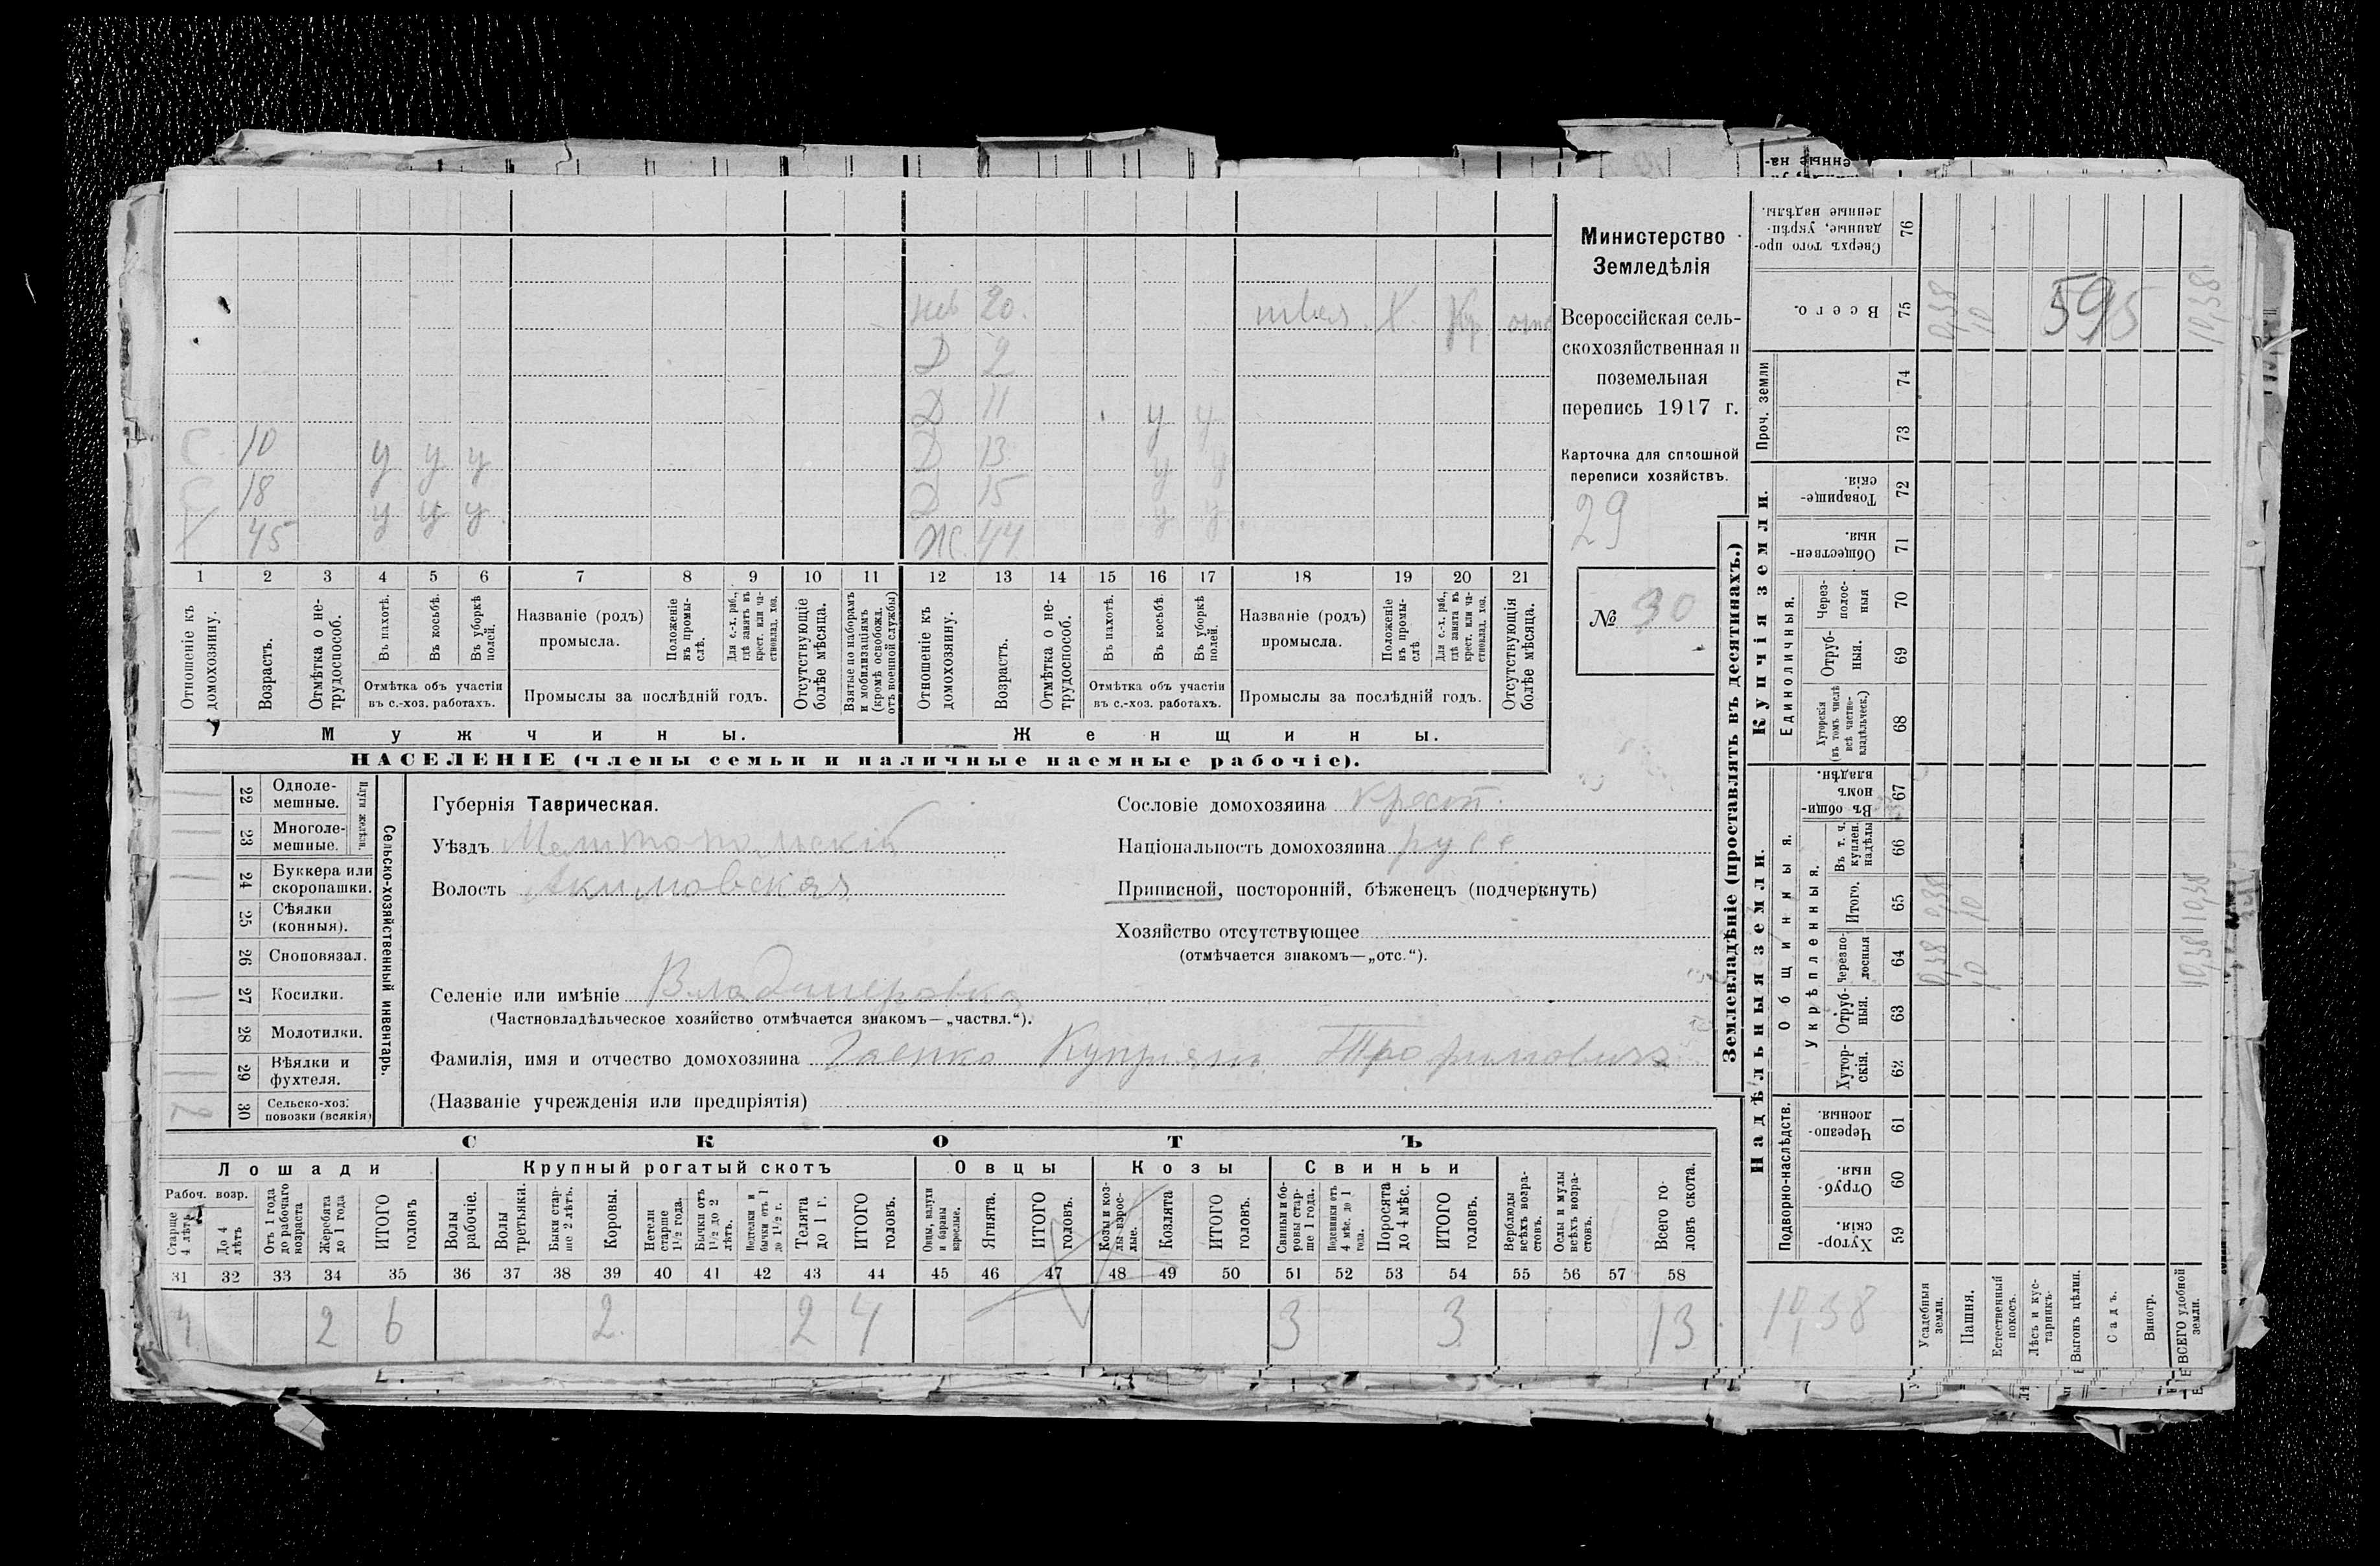 Министерство
Земледѣлія
Всероссійская сель-
скохозяйственная и
поземельная
перепись 1917 г.
Карточка для сплошной
переписи хозяйствъ.
29
№ 30
нев 20. швея Х. Кр.
Д 2
Д 11 у у
С 10 у у у Д 13 у у
С 18 у у у Д 15 у у
Х 45 Ж. 44
1 2 3 4 5 6 7 8 9 10 11 12 13 14 15 16 17 18 19 20 21
Отношеніе къ домохозяину.
Возрастъ.
Отмѣтка о не-трудоспособ.
Въ пахотѣ.
Въ косьбѣ.
Въ уборкѣ полей.
Отмѣтка объ участіи
въ с.-хоз. работахъ.
Названіе (родъ)
промысла.
Положеніе въ промы-слѣ.
Для с.-х. раб., гдѣ занятъ въ крест. или ча-стновлад. хоз.
Промыслы за послѣдній годъ.
Отсутствующіе болѣе мѣсяца.
Взятые по наборамъ и мобилизаціямъ (кромѣ освобожд. отъ военной службы)
Отношеніе къ домохозяину.
Возрастъ.
Отмѣтка о не-трудоспособ.
Въ пахотѣ.
Въ косьбѣ.
Въ уборкѣ полей.
Отмѣтка объ участіи
въ с.-хоз. работахъ.
Названіе (родъ)
промысла.
Положеніе въ промы-слѣ
Для с.-х. раб., гдѣ занята въ крест. или ча-стновлад. хоз.
Промыслы за послѣдній годъ.
Отсутствующія болѣе мѣсяца.
Мужчины. Женщины.
НАСЕЛЕНІЕ (члены семьи и наличные наемные рабочіе).
Сельско-хозяйственный инвентарь.
Плуги желѣзн.
22 Одноле-мешные.
23 Многоле-мешные.
24 Буккера или скоропашки.
25 Сѣялки (конныя).
26 Сноповязал.
27 Косилки.
28 Молотилки.
29 Вѣялки и фухтеля.
30 Сельско-хоз. повозки (всякія) 2
Губернія Таврическая.
Уѣздъ Мелитопольскій
Волость Акимовская
Сословіе домохозяина крест.
Національность домохозяина русс
Приписной, посторонній, бѣженецъ (подчеркнуть)
Хозяйство отсутствующее
(отмѣчается знакомъ—„отс.“).
Селеніе или имѣніе Владимеровка
(Частновладѣльческое хозяйство отмѣчается знакомъ—„частвл.“).
Фамилія, имя и отчество домохозяина Гаенко Куприянъ Трофимовичъ
(Названіе учрежденія или предпріятія)
СКОТЪ
Лошади Крупный рогатый скотъ Овцы Козы Свиньи
Рабоч. возр.
Старше 4 лѣтъ
До 4 лѣтъ
Отъ 1 года до рабочаго возраста
Жеребята до 1 года
ИТОГО головъ
Волы рабочіе.
Волы третьяки.
Быки стар-ше 2 лѣтъ.
Коровы.
Нетели старше 1 1/2 года.
Бычки отъ 1 1/2 до 2 лѣтъ.
Подтелки и бычки отъ 1 до 1 1/2 г.
Телята до 1 г.
ИТОГО головъ.
Овцы, валухи и бараны взрослые.
Ягнята.
ИТОГО головъ.
Козы и коз-лы взрос-лые.
Козлята
ИТОГО головъ.
Свиньи и бо-ровы стар-ше 1 года.
Подсвинки отъ 4 мѣс. до 1 года.
Поросята до 4 мѣс.
ИТОГО головъ.
Верблюды всѣхъ возра-стовъ.
Ослы и мулы всѣхъ возра-стовъ.
Всего го-ловъ скота.
31 32 33 34 35 36 37 38 39 40 41 42 43 44 45 46 47 48 49 50 51 52 53 54 55 56 57 58
4 2 6 2. 2 4 3 3 13
Землевладѣніе (проставлять въ десятинахъ.)
Надѣльныя земли. Купчія земли.
Подворно-наслѣдств.
Общинныя.
Укрѣпленныя.
Единоличныя.
Проч. земли
Хутор-скія. 59
Отруб-ныя. 60
Черезпо-лосныя. 61
Хутор-скія. 62
Отруб-ныя. 63
Черезпо-лосныя 64
Итого. 65
Въ т. ч. куплен. надѣлы 66
Въ общи-номъ владѣн. 67
Хуторскія (въ томъ числѣ всѣ частно-владѣльческ.) 68
Отруб-ныя. 69
Через-полос-ныя 70
Обществен-ныя. 71
Товарище-скія. 72
73
74
Всего. 75
Сверхъ того про-данные, укрѣп-ленные надѣлы. 76
Усадебныя земли. 0,38 0,38 0,38
Пашня. 10 10 10
Естественный покосъ.
Лѣсъ и кус-тарникъ.
Выгонъ цѣлин.
Садъ.
Виногр.
ВСЕГО удобной земли. 10,38 10,38 10,38
595
10,38